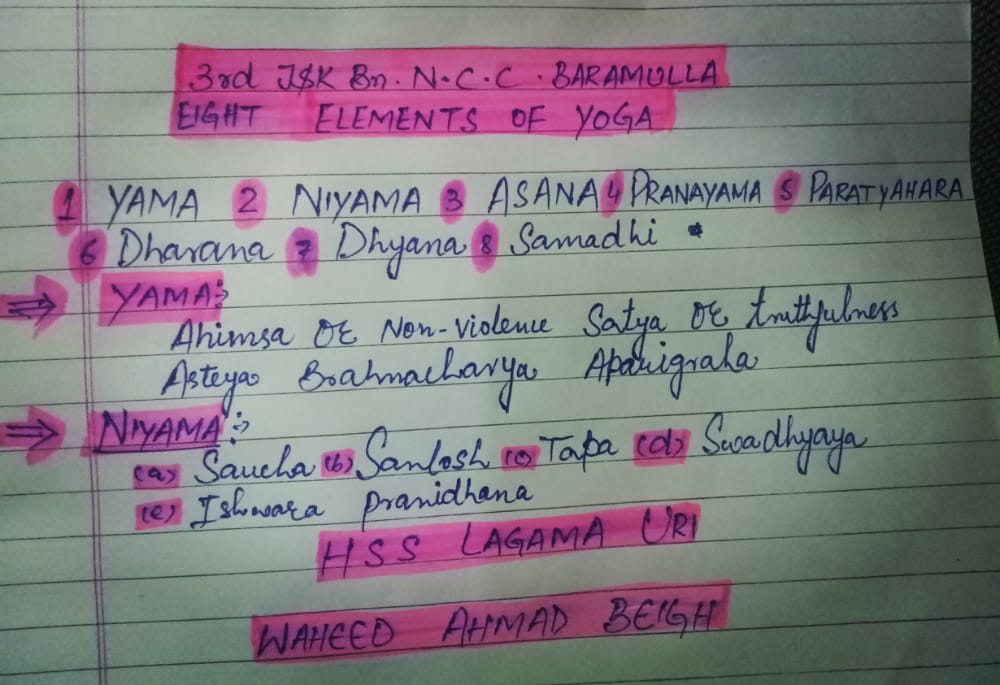 3rd J&K Bn. N.C.C. BARAMULLA
EIGHT ELEMENTS OF YOGA
1 YAMA 2 NIYAMA 3 ASANA 4 PRANAYAMA 5 PARATYAHARA
6 Dharana 7 Dhyana 8 Samadhi *
⇒ YAMA:-
Ahimsa OE Non-violence Satya OE truthfulness
Asteya Brahmacharya Aparigraha
⇒ NIYAMA:-
(a) Saucha (b) Santosh (c) Tapa (d) Swadhyaya
(e) Ishwara Pranidhana
HSS LAGAMA URI
WAHEED AHMAD BEIGH